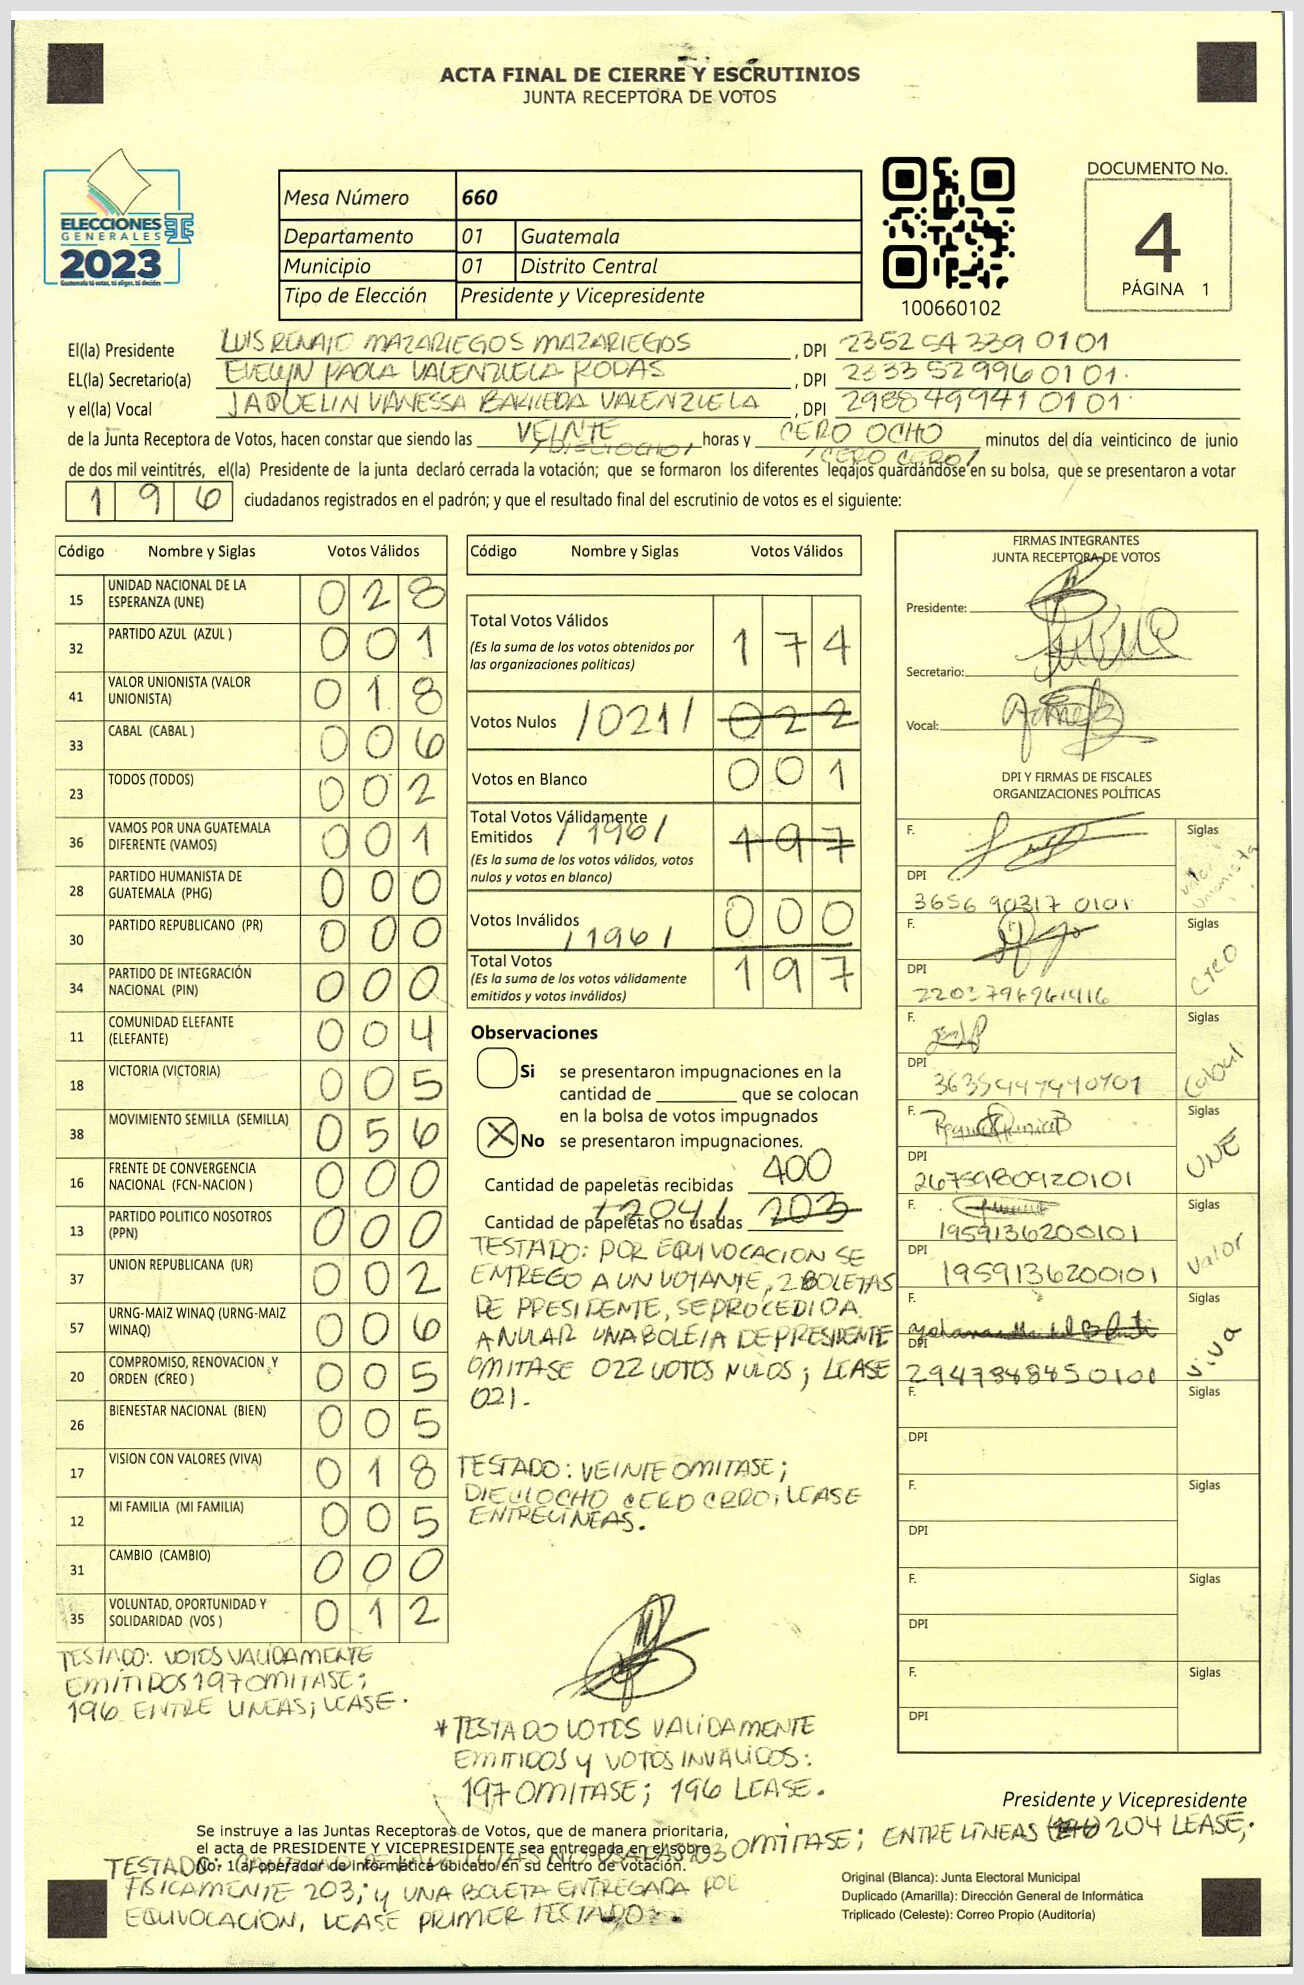 ACTA FINAL DE CIERRE Y ESCRUTINIOS
JUNTA RECEPTORA DE VOTOS
ELECCIONES
GENERALES
2023
Guatemala tú votas, tú eliges, tú decides
Mesa Número 660
Departamento 01 Guatemala
Municipio 01 Distrito Central
Tipo de Elección Presidente y Vicepresidente
100660102
DOCUMENTO No.
4
PÁGINA 1
El(la) Presidente LUIS RENATO MAZARIEGOS MAZARIEGOS , DPI 2352 54339 0101
EL(la) Secretario(a) EVELYN PAOLA VALENZUELA RODAS , DPI 2333 52996 0101.
y el(la) Vocal JAQUELIN VANESSA BARREDA VALENZUELA , DPI 2988 49941 0101.
de la Junta Receptora de Votos, hacen constar que siendo las VEINTE horas y CERO OCHO minutos del día veinticinco de junio
/DIECIOCHO/ /CERO CERO/
de dos mil veintitrés, el(la) Presidente de la junta declaró cerrada la votación; que se formaron los diferentes legajos guardándose en su bolsa, que se presentaron a votar
196 ciudadanos registrados en el padrón; y que el resultado final del escrutinio de votos es el siguiente:
Código Nombre y Siglas Votos Válidos
15 UNIDAD NACIONAL DE LA ESPERANZA (UNE) 028
32 PARTIDO AZUL (AZUL ) 001
41 VALOR UNIONISTA (VALOR UNIONISTA) 018
33 CABAL (CABAL ) 006
23 TODOS (TODOS) 002
36 VAMOS POR UNA GUATEMALA DIFERENTE (VAMOS) 001
28 PARTIDO HUMANISTA DE GUATEMALA (PHG) 000
30 PARTIDO REPUBLICANO (PR) 000
34 PARTIDO DE INTEGRACIÓN NACIONAL (PIN) 000
11 COMUNIDAD ELEFANTE (ELEFANTE) 004
18 VICTORIA (VICTORIA) 005
38 MOVIMIENTO SEMILLA (SEMILLA) 056
16 FRENTE DE CONVERGENCIA NACIONAL (FCN-NACION ) 000
13 PARTIDO POLITICO NOSOTROS (PPN) 000
37 UNION REPUBLICANA (UR) 002
57 URNG-MAIZ WINAQ (URNG-MAIZ WINAQ) 006
20 COMPROMISO, RENOVACION Y ORDEN (CREO ) 005
26 BIENESTAR NACIONAL (BIEN) 005
17 VISION CON VALORES (VIVA) 018
12 MI FAMILIA (MI FAMILIA) 005
31 CAMBIO (CAMBIO) 000
35 VOLUNTAD, OPORTUNIDAD Y SOLIDARIDAD (VOS ) 012
TESTADO: VOTOS VALIDAMENTE
EMITIDOS 197 OMITASE;
196 ENTRE LINEAS; LEASE.
Código Nombre y Siglas Votos Válidos
Total Votos Válidos 174
(Es la suma de los votos obtenidos por
las organizaciones políticas)
Votos Nulos /021/ 022
Votos en Blanco 001
Total Votos Válidamente
Emitidos /196/ 197
(Es la suma de los votos válidos, votos
nulos y votos en blanco)
Votos Inválidos 000
/196/
Total Votos 197
(Es la suma de los votos válidamente
emitidos y votos inválidos)
Observaciones
Si se presentaron impugnaciones en la
cantidad de ________ que se colocan
en la bolsa de votos impugnados
X No se presentaron impugnaciones.
Cantidad de papeletas recibidas 400
Cantidad de papeletas no usadas /204/ 203
TESTADO: POR EQUIVOCACION SE
ENTREGO A UN VOTANTE, 2 BOLETAS
DE PRESIDENTE, SE PROCEDIO A
ANULAR UNA BOLETA DE PRESIDENTE
OMITASE 022 VOTOS NULOS; LEASE
021.
TESTADO: VEINTE OMITASE;
DIECIOCHO CERO CERO; LEASE
ENTRELINEAS.
*TESTADO VOTOS VALIDAMENTE
EMITIDOS Y VOTOS INVALIDOS:
197 OMITASE; 196 LEASE.
FIRMAS INTEGRANTES
JUNTA RECEPTORA DE VOTOS
Presidente:
Secretario:
Vocal:
DPI Y FIRMAS DE FISCALES
ORGANIZACIONES POLÍTICAS
F. Siglas Valor Unionista
DPI 3656 90317 0101
F. Siglas CREO
DPI
F. Siglas Cabal
DPI
F. Siglas UNE
DPI 2675980920101
F. Siglas Valor
1959136200101
DPI 1959136200101
F. Siglas VIVA
DPI 2947848450101
F. Siglas
DPI
F. Siglas
DPI
F. Siglas
DPI
F. Siglas
DPI
Presidente y Vicepresidente
Se instruye a las Juntas Receptoras de Votos, que de manera prioritaria,
el acta de PRESIDENTE Y VICEPRESIDENTE sea entregada en el sobre
No. 1 al operador de informática ubicado en su centro de votación.
TESTADO: NO USADAS 203 OMITASE; ENTRE LÍNEAS 204 LEASE;
FISICAMENTE 203; Y UNA BOLETA ENTREGADA POR
EQUIVOCACION, LEASE PRIMER TESTADO.
Original (Blanca): Junta Electoral Municipal
Duplicado (Amarilla): Dirección General de Informática
Triplicado (Celeste): Correo Propio (Auditoría)